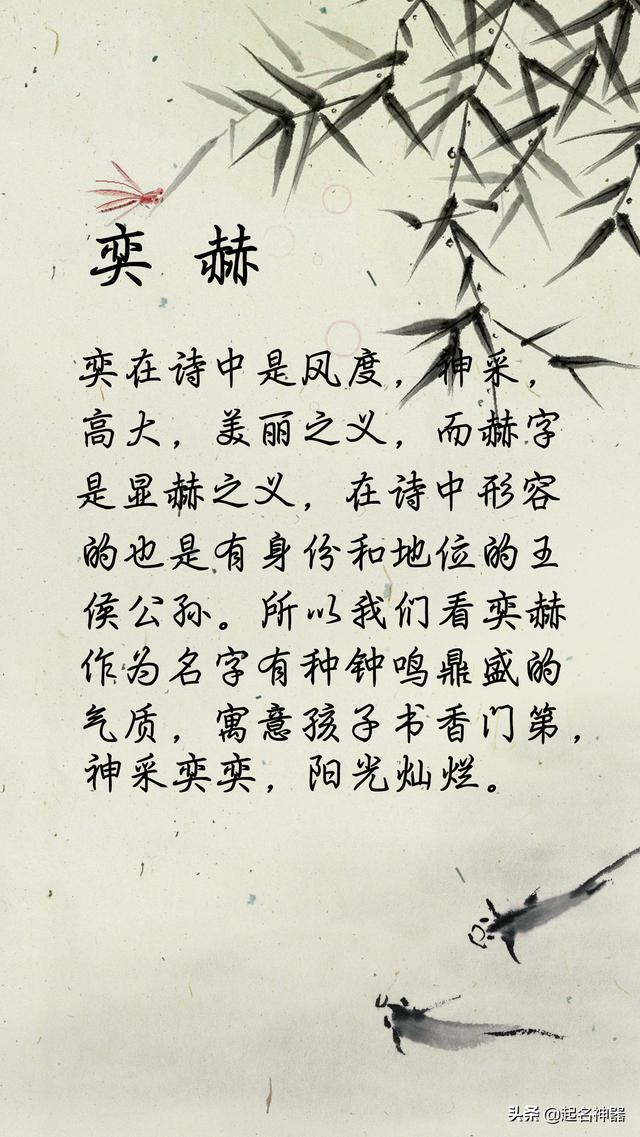 奕 赫
奕在诗中是风度，神采，
高大，美丽之义，而赫字
是显赫之义，在诗中形容
的也是有身份和地位的王
侯公孙。所以我们看奕赫
作为名字有种钟鸣鼎盛的
气质，寓意孩子书香门第，
神采奕奕，阳光灿烂。
头条 @起名神器